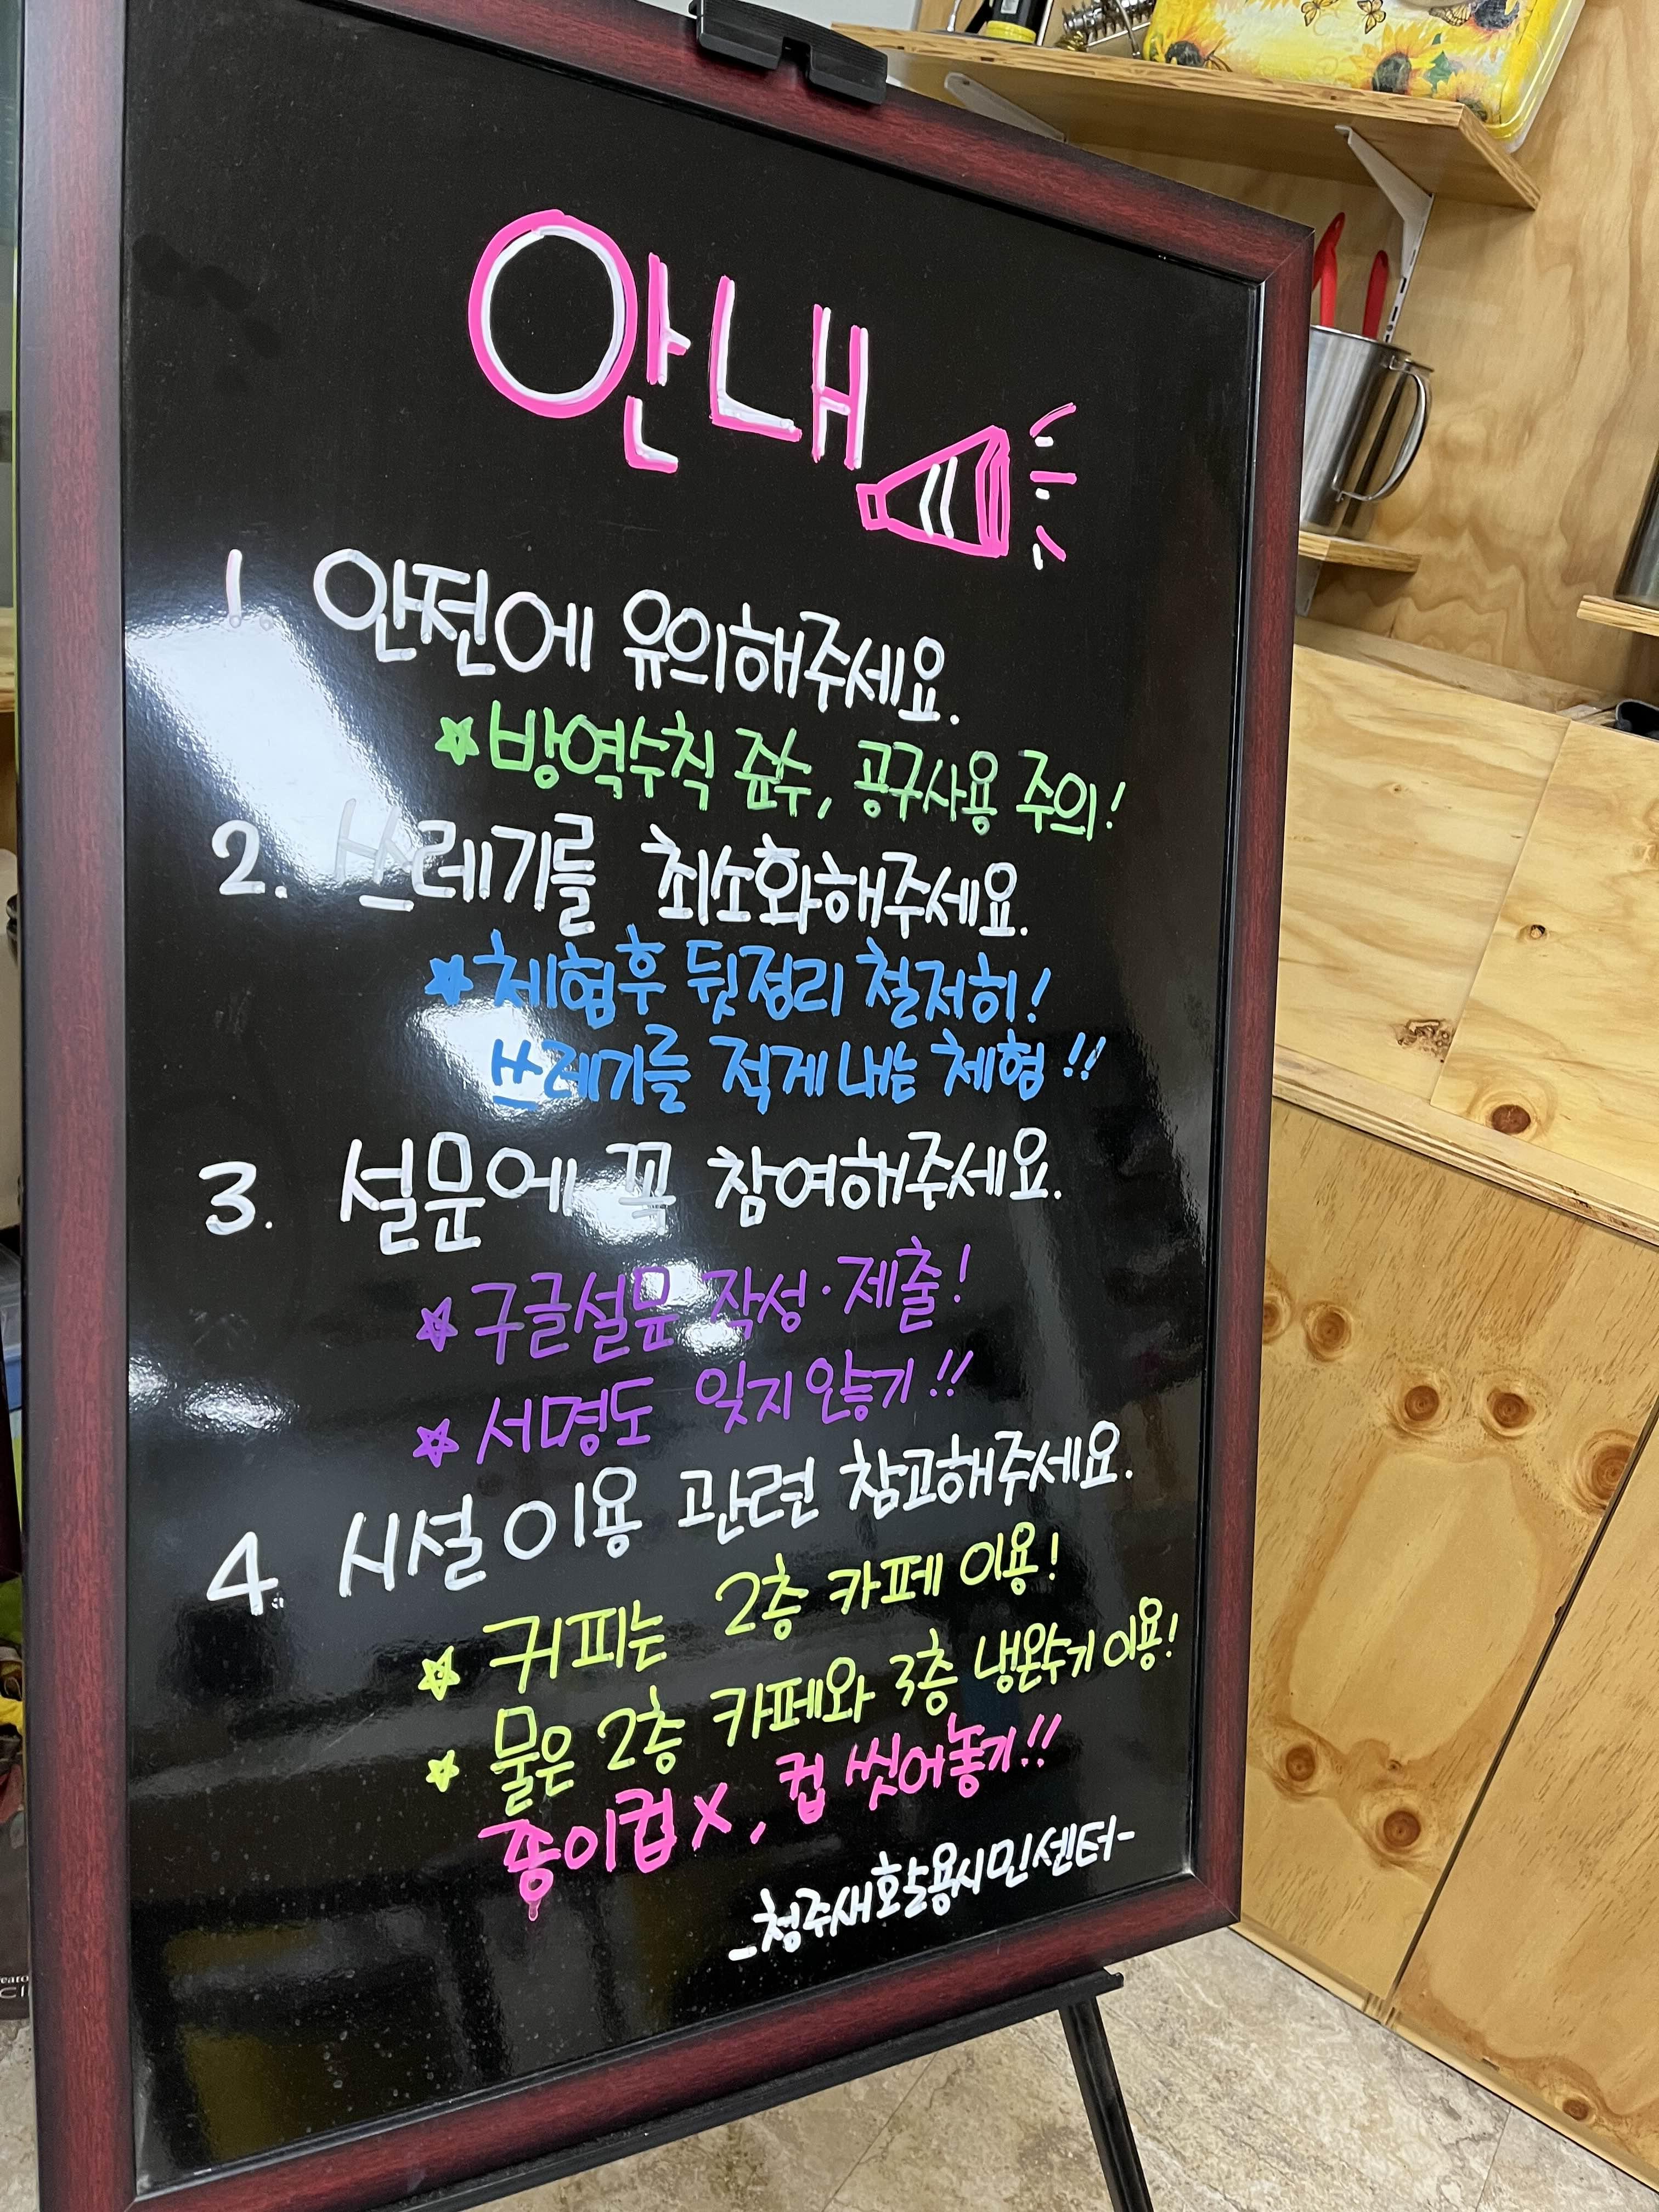 안내
1. 안전에 유의해주세요.
★방역수칙 준수, 공구사용 주의!
2. 쓰레기를 최소화해주세요.
★체험후 뒷정리 철저히!
쓰레기를 적게내는 체험!!
3. 설문에 꼭 참여해주세요.
★구글설문 작성·제출!
★서명도 잊지않기!!
4. 시설이용 관련 참고해주세요.
★커피는 2층 카페 이용!
★물은 2층 카페와 3층 냉온수기이용!
종이컵X, 컵 씻어놓기!!
-청주새활용시민센터-